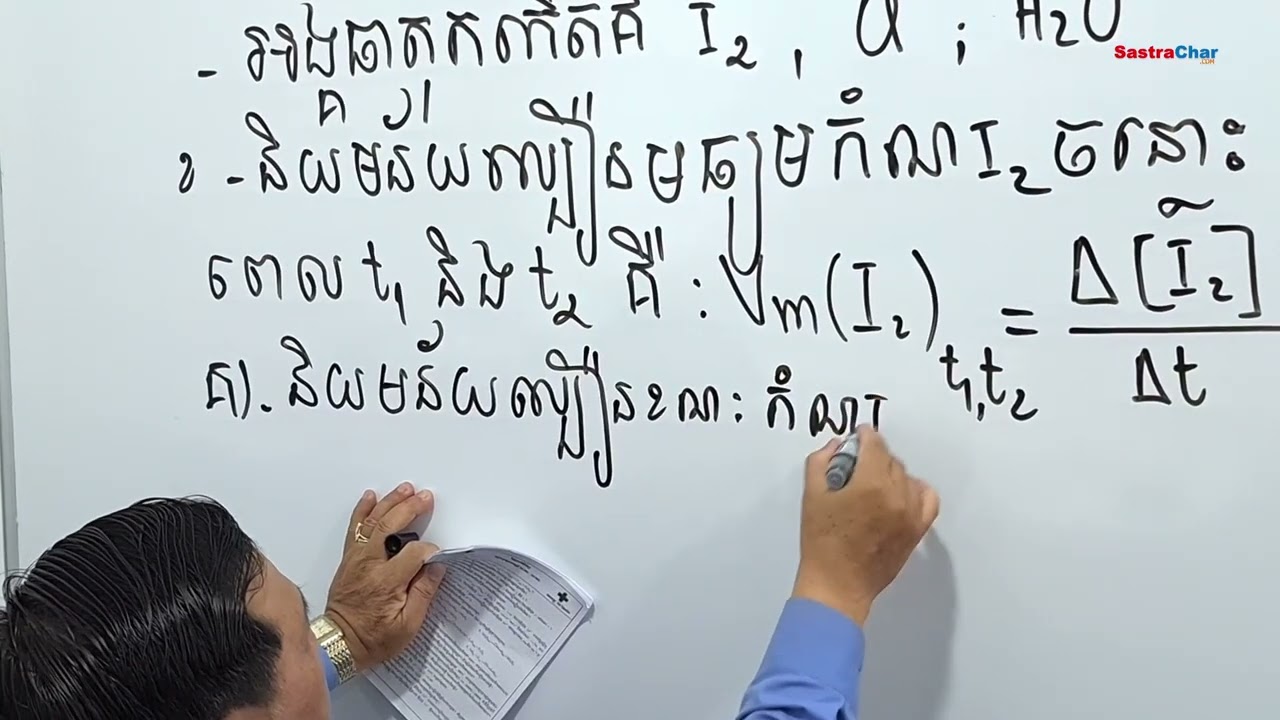 - អង្គធាតុកកើតគឺ I₂ , Cl ; H₂O
SastraChar
.COM
ខ - និយមន័យល្បឿនមធ្យមកំណ I₂ ចន្លោះ
ពេល t₁ និង t₂ គឺ : Vm(I₂) t₁,t₂ = Δ[I₂] / Δt
គ). និយមន័យល្បឿនខណៈ កំណ I